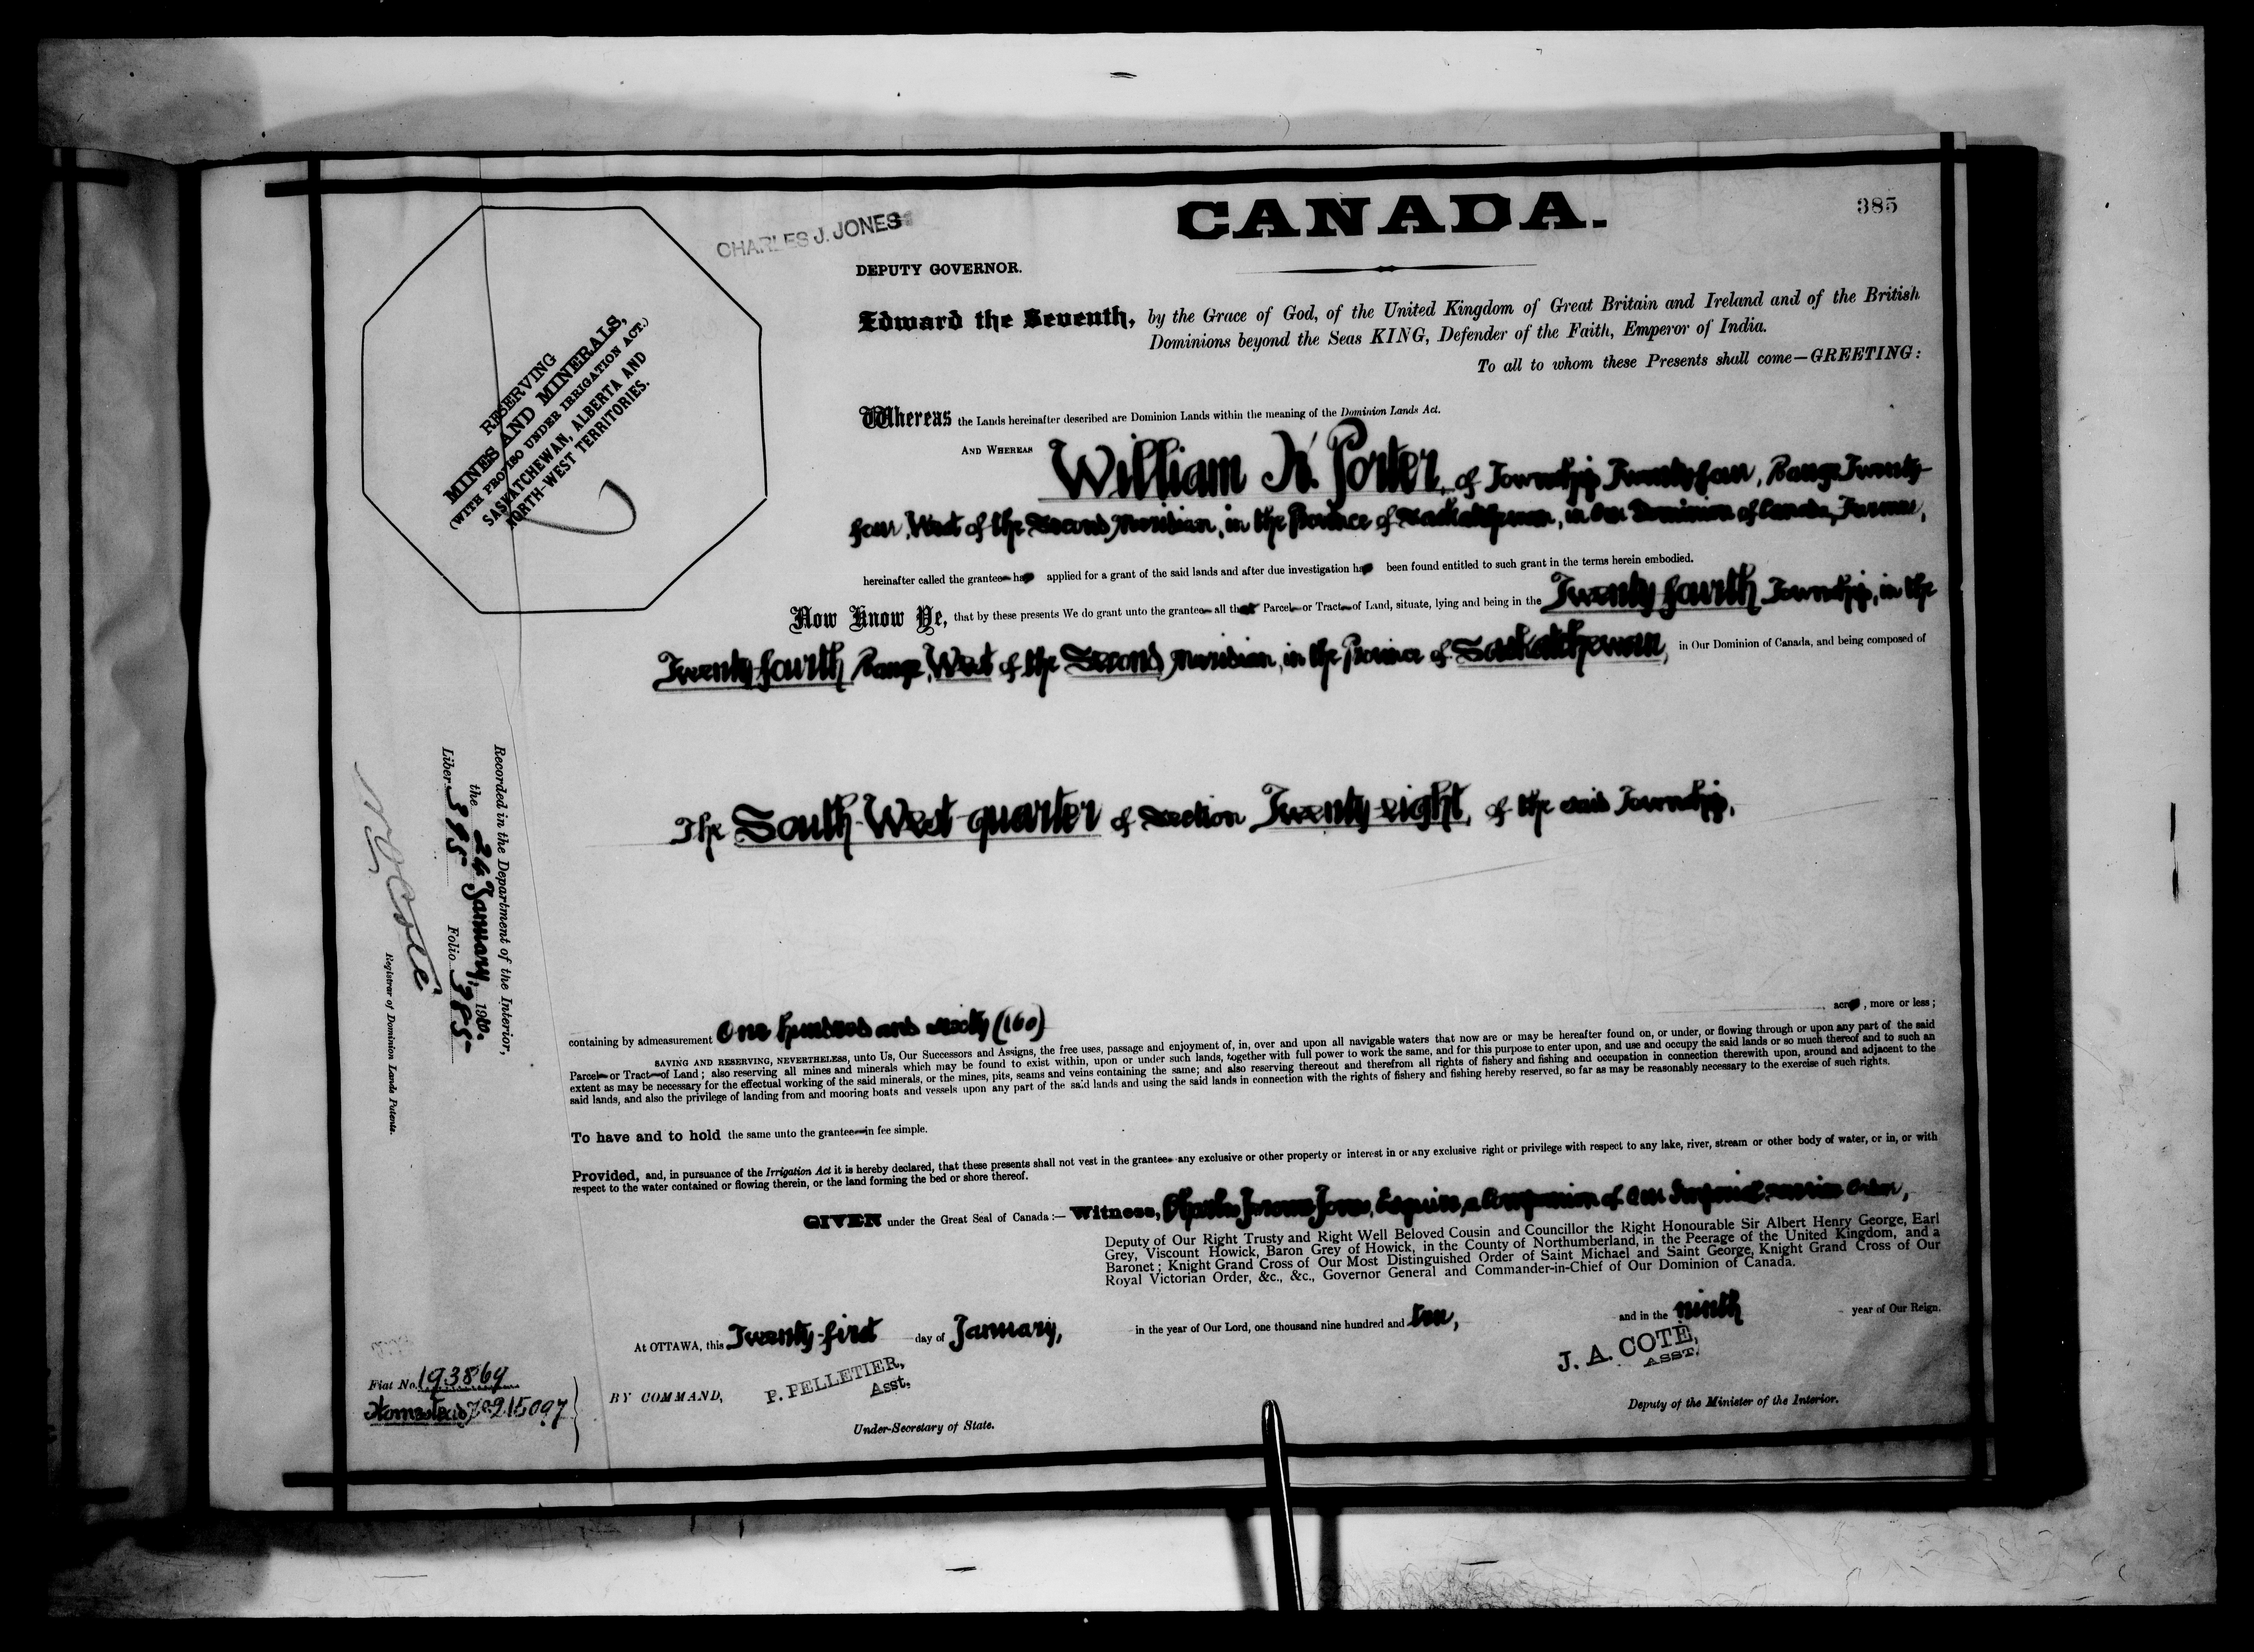 385
CANADA.
CHARLES J. JONES
DEPUTY GOVERNOR.
RESERVING
MINES AND MINERALS,
(WITH PROVISO UNDER IRRIGATION ACT.)
SASKATCHEWAN, ALBERTA AND
NORTH-WEST TERRITORIES.
Edward the Seventh, by the Grace of God, of the United Kingdom of Great Britain and Ireland and of the British
Dominions beyond the Seas KING, Defender of the Faith, Emperor of India.
To all to whom these Presents shall come—GREETING:
Whereas the Lands hereinafter described are Dominion Lands within the meaning of the Dominion Lands Act.
AND WHEREAS William Porter, of Township Twenty four, Range Twenty-
four, West of the Second Meridian, in the Province of Saskatchewan, in Our Dominion of Canada, Farmer,
hereinafter called the grantee has applied for a grant of the said lands and after due investigation has been found entitled to such grant in the terms herein embodied.
Now Know Ye, that by these presents We do grant unto the grantee all that Parcel or Tract of Land, situate, lying and being in the Twenty fourth Township, in the
Twenty fourth Range, West of the Second Meridian, in the Province of Saskatchewan, in Our Dominion of Canada, and being composed of
The South West quarter of Section Twenty eight, of the said Township,
containing by admeasurement One hundred and sixty (160) acres, more or less;
SAVING AND RESERVING, NEVERTHELESS, unto Us, Our Successors and Assigns, the free uses, passage and enjoyment of, in, over and upon all navigable waters that now are or may be hereafter found on, or under, or flowing through or upon any part of the said
Parcel or Tract of Land; also reserving all mines and minerals which may be found to exist within, upon or under such lands, together with full power to work the same, and for this purpose to enter upon, and use and occupy the said lands or so much thereof and to such an
extent as may be necessary for the effectual working of the said minerals, or the mines, pits, seams and veins containing the same; and also reserving thereout and therefrom all rights of fishery and fishing and occupation in connection therewith upon, around and adjacent to the
said lands, and also the privilege of landing from and mooring boats and vessels upon any part of the said lands and using the said lands in connection with the rights of fishery and fishing hereby reserved, so far as may be reasonably necessary to the exercise of such rights.
To have and to hold the same unto the grantee in fee simple.
Provided, and, in pursuance of the Irrigation Act it is hereby declared, that these presents shall not vest in the grantee any exclusive or other property or interest in or any exclusive right or privilege with respect to any lake, river, stream or other body of water, or in, or with
respect to the water contained or flowing therein, or the land forming the bed or shore thereof.
GIVEN under the Great Seal of Canada:— Witness, Charles Jerome Jones, Esquire, a Companion of Our Imperial Service Order,
Deputy of Our Right Trusty and Right Well Beloved Cousin and Councillor the Right Honourable Sir Albert Henry George, Earl
Grey, Viscount Howick, Baron Grey of Howick, in the County of Northumberland, in the Peerage of the United Kingdom, and a
Baronet; Knight Grand Cross of Our Most Distinguished Order of Saint Michael and Saint George, Knight Grand Cross of Our
Royal Victorian Order, &c., &c., Governor General and Commander-in-Chief of Our Dominion of Canada.
At OTTAWA, this Twenty-first day of January, in the year of Our Lord, one thousand nine hundred and ten, and in the ninth year of Our Reign.
BY COMMAND,
P. PELLETIER,
Asst.
Under-Secretary of State.
J. A. COTE,
ASST.
Deputy of the Minister of the Interior.
Recorded in the Department of the Interior,
the 24 January, 1910.
Liber 395 Folio 385
N O Coté
Registrar of Dominion Lands Patents.
Fiat No. 193869
Homestead No 215097